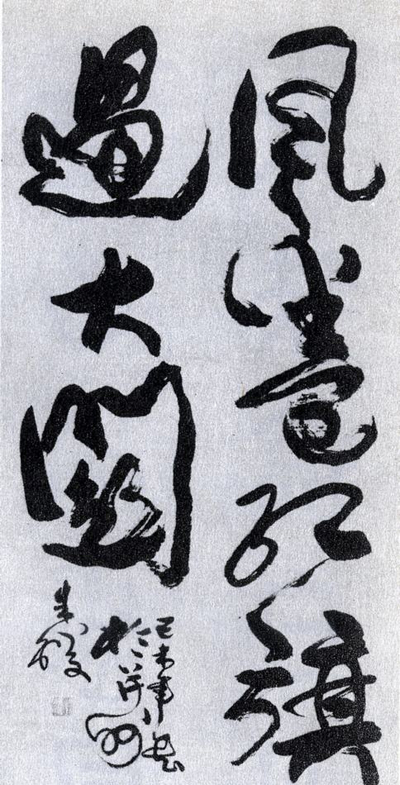 風卷紅旗
過大關
己未年